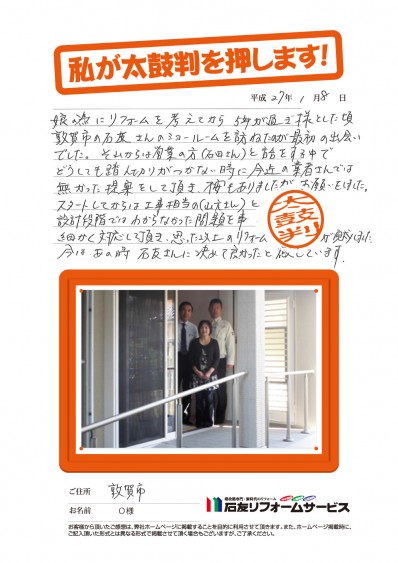 私が太鼓判を押します!
平成 27年 1月8日
娘の為にリフォームを考えてから 5年が過ぎ様とした頃
敦賀市の石友さんのショールームを訪ねたのが最初の出会い
でした。それからは営業の方(石田さん)と話をする中で
どうしても踏ん切りがつかない時に今近の業者さんでは
無かった提案をして頂き、不安もありましたがお願いしました。
スタートしてからは工事担当の(山本さん)と
設計段階ではわからなかった問題を事
細かく対応して頂き、思った以上のリフォームが
今は、あの時 石友さんに決めて良かったと感じています。
太鼓判
ご住所 敦賀市
お名前 O様
増改築専門・新時代のリフォーム
石友リフォームサービス
お客様から頂いたご感想は、弊社ホームページに掲載することを目的に利用させて頂きます。また、ホームページ掲載時に、
ご記入頂いた形式とは異なる形式で掲載させて頂く場合もございますが、ご了承ください。